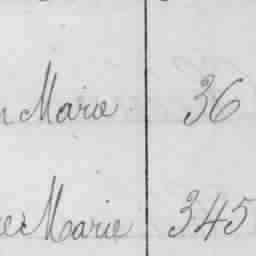 Marie 36
Marie 345